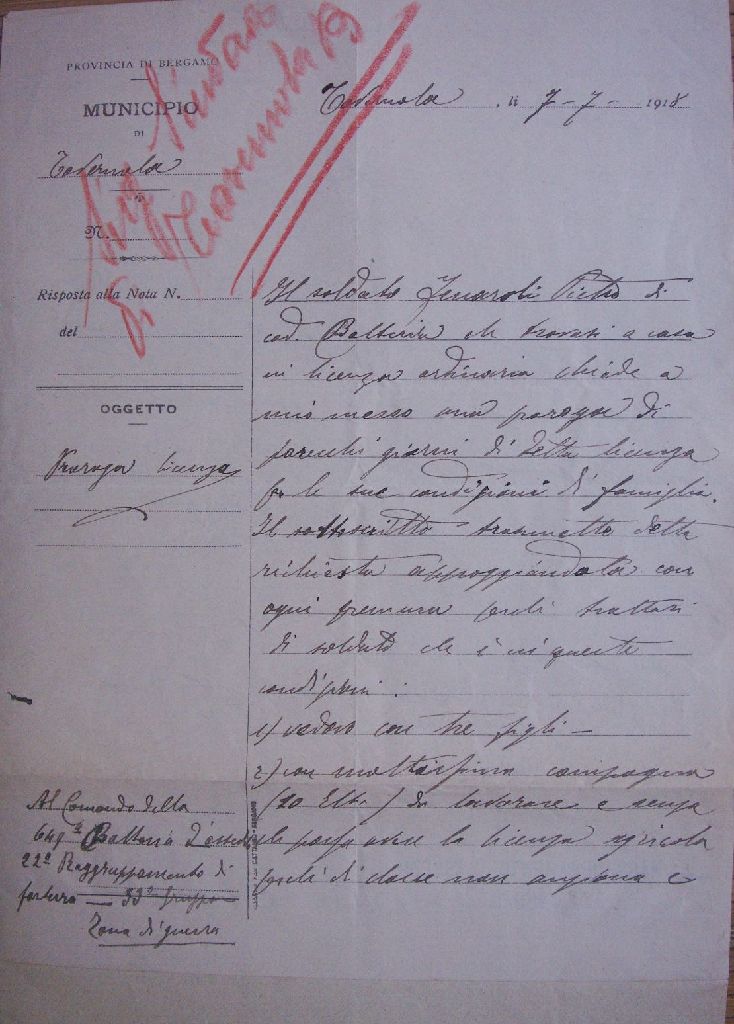 PROVINCIA DI BERGAMO
MUNICIPIO
DI
Tavernola
N.
Tavernola, li 7-7-1918
Risposta alla Nota N.
del
OGGETTO
Proroga licenza
Il soldato Fenaroli Pietro di
cod. Batteria che trovasi a casa
in licenza ordinaria chiede a
mio mezzo una proroga di
parecchi giorni di detta licenza
per le sue condizioni di famiglia.
Il sottoscritto trasmette detta
richiesta appoggiandola con
ogni premura perché trattasi
di soldato che è in queste
condizioni:
1) vedovo con tre figli -
2) con moltissima campagna
(20 Ett.) da lavorare e senza
che possa avere la licenza agricola
perché di classe non anziana e
Al Comando della
649ª Batteria d'assedio
22º Raggruppamento di
fortezza - 53º gruppo
Zona di guerra